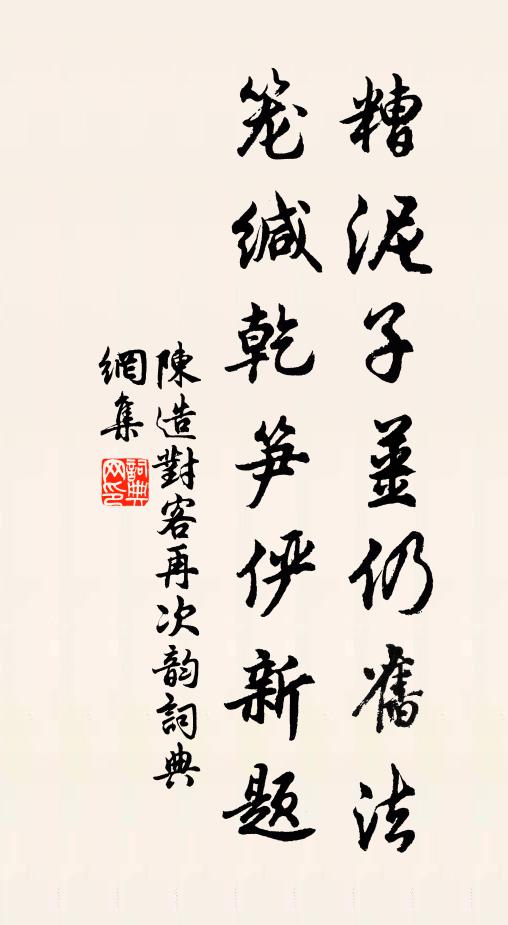 糟泥子薑仍舊法
笼緘乾笋伻新题
陳造對客再次韵詞典
網集
詞典网印